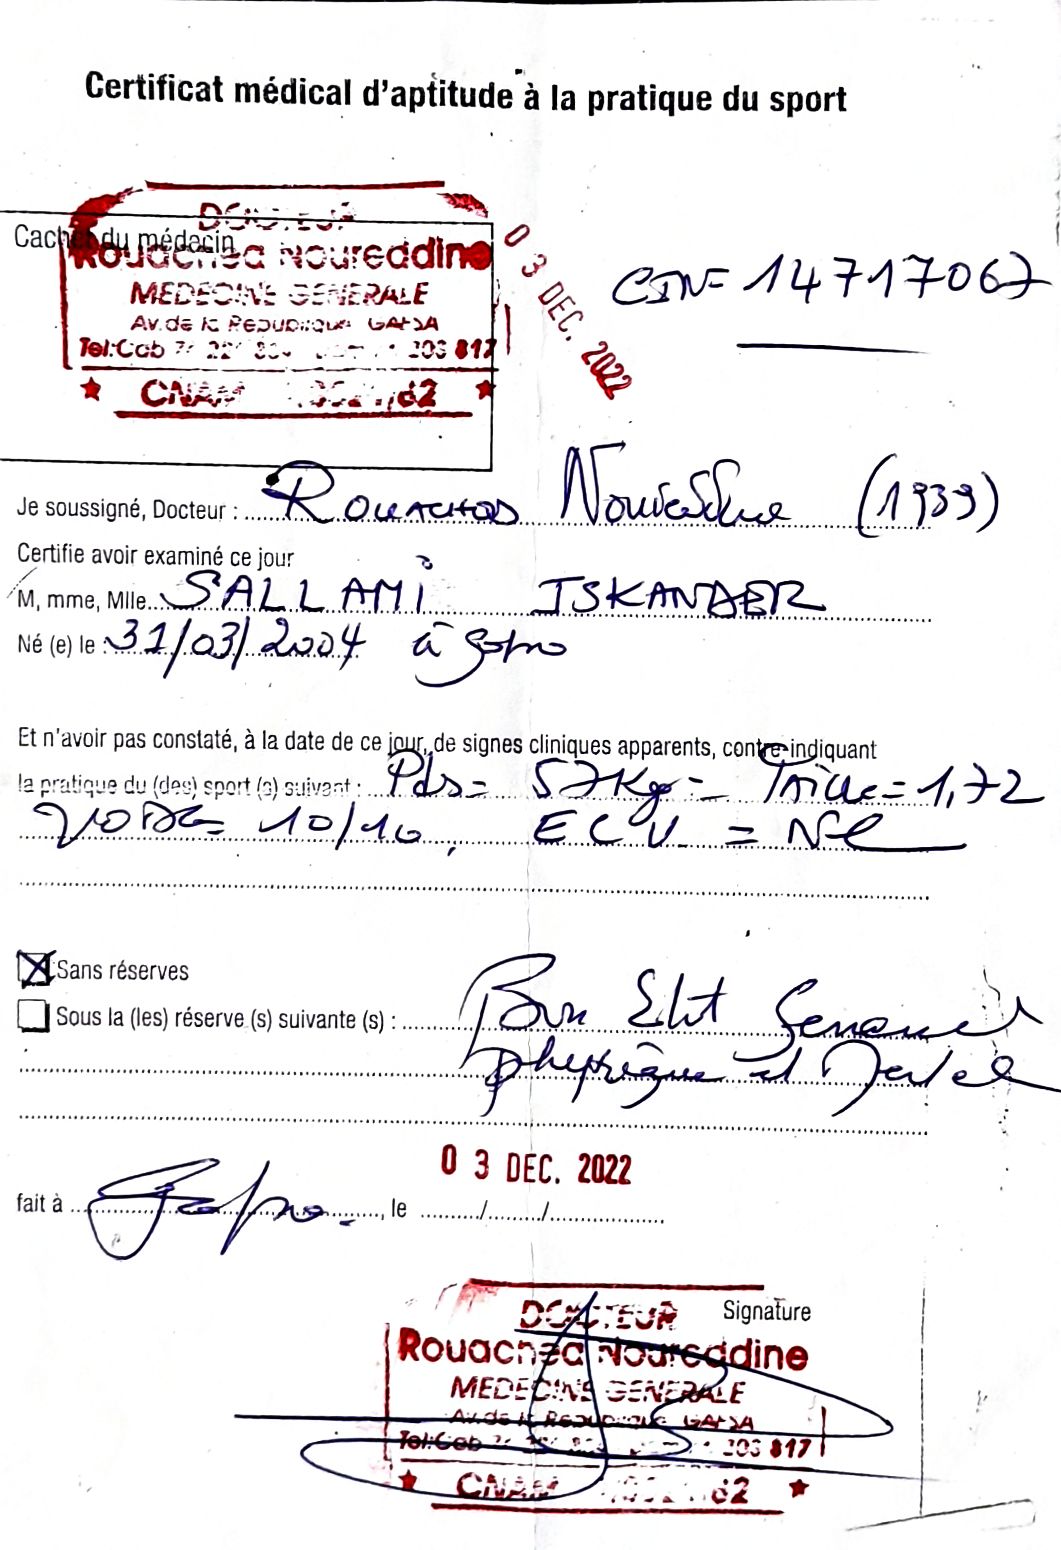 Certificat médical d'aptitude à la pratique du sport
Cachet du médecin
DOCTEUR
Rouached Noureddine
MEDECINE GENERALE
Av. de la Republique GAFSA
Tel: Cab 817
CNAM
0 3 DEC. 2022
CIN= 14717067
Je soussigné, Docteur : Rouached Noureddine (1939)
Certifie avoir examiné ce jour
M, mme, Mlle SALLAMi ISKANDER
Né (e) le : 31/03/2004 à Gafsa
Et n'avoir pas constaté, à la date de ce jour, de signes cliniques apparents, contre-indiquant
la pratique du (des) sport (s) suivant : Pds= 57Kg = Taille = 1,72
VODG= 10/10, ECV = Nl
Sans réserves
Sous la (les) réserve (s) suivante (s) : Bon Etat General
physique et Mental
fait à Gafsa, le 0 3 DEC. 2022
Signature
DOCTEUR
Rouached Noureddine
MEDECINE GENERALE
Av. de la Republique GAFSA
Tel: Cab 817
CNAM